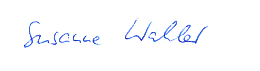 Susanne Wahler